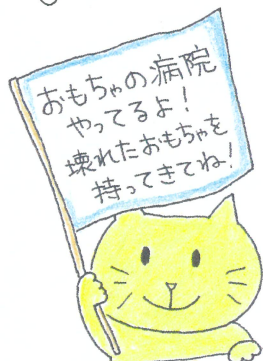 おもちゃの病院
やってるよ!
壊れたおもちゃを
持ってきてね!